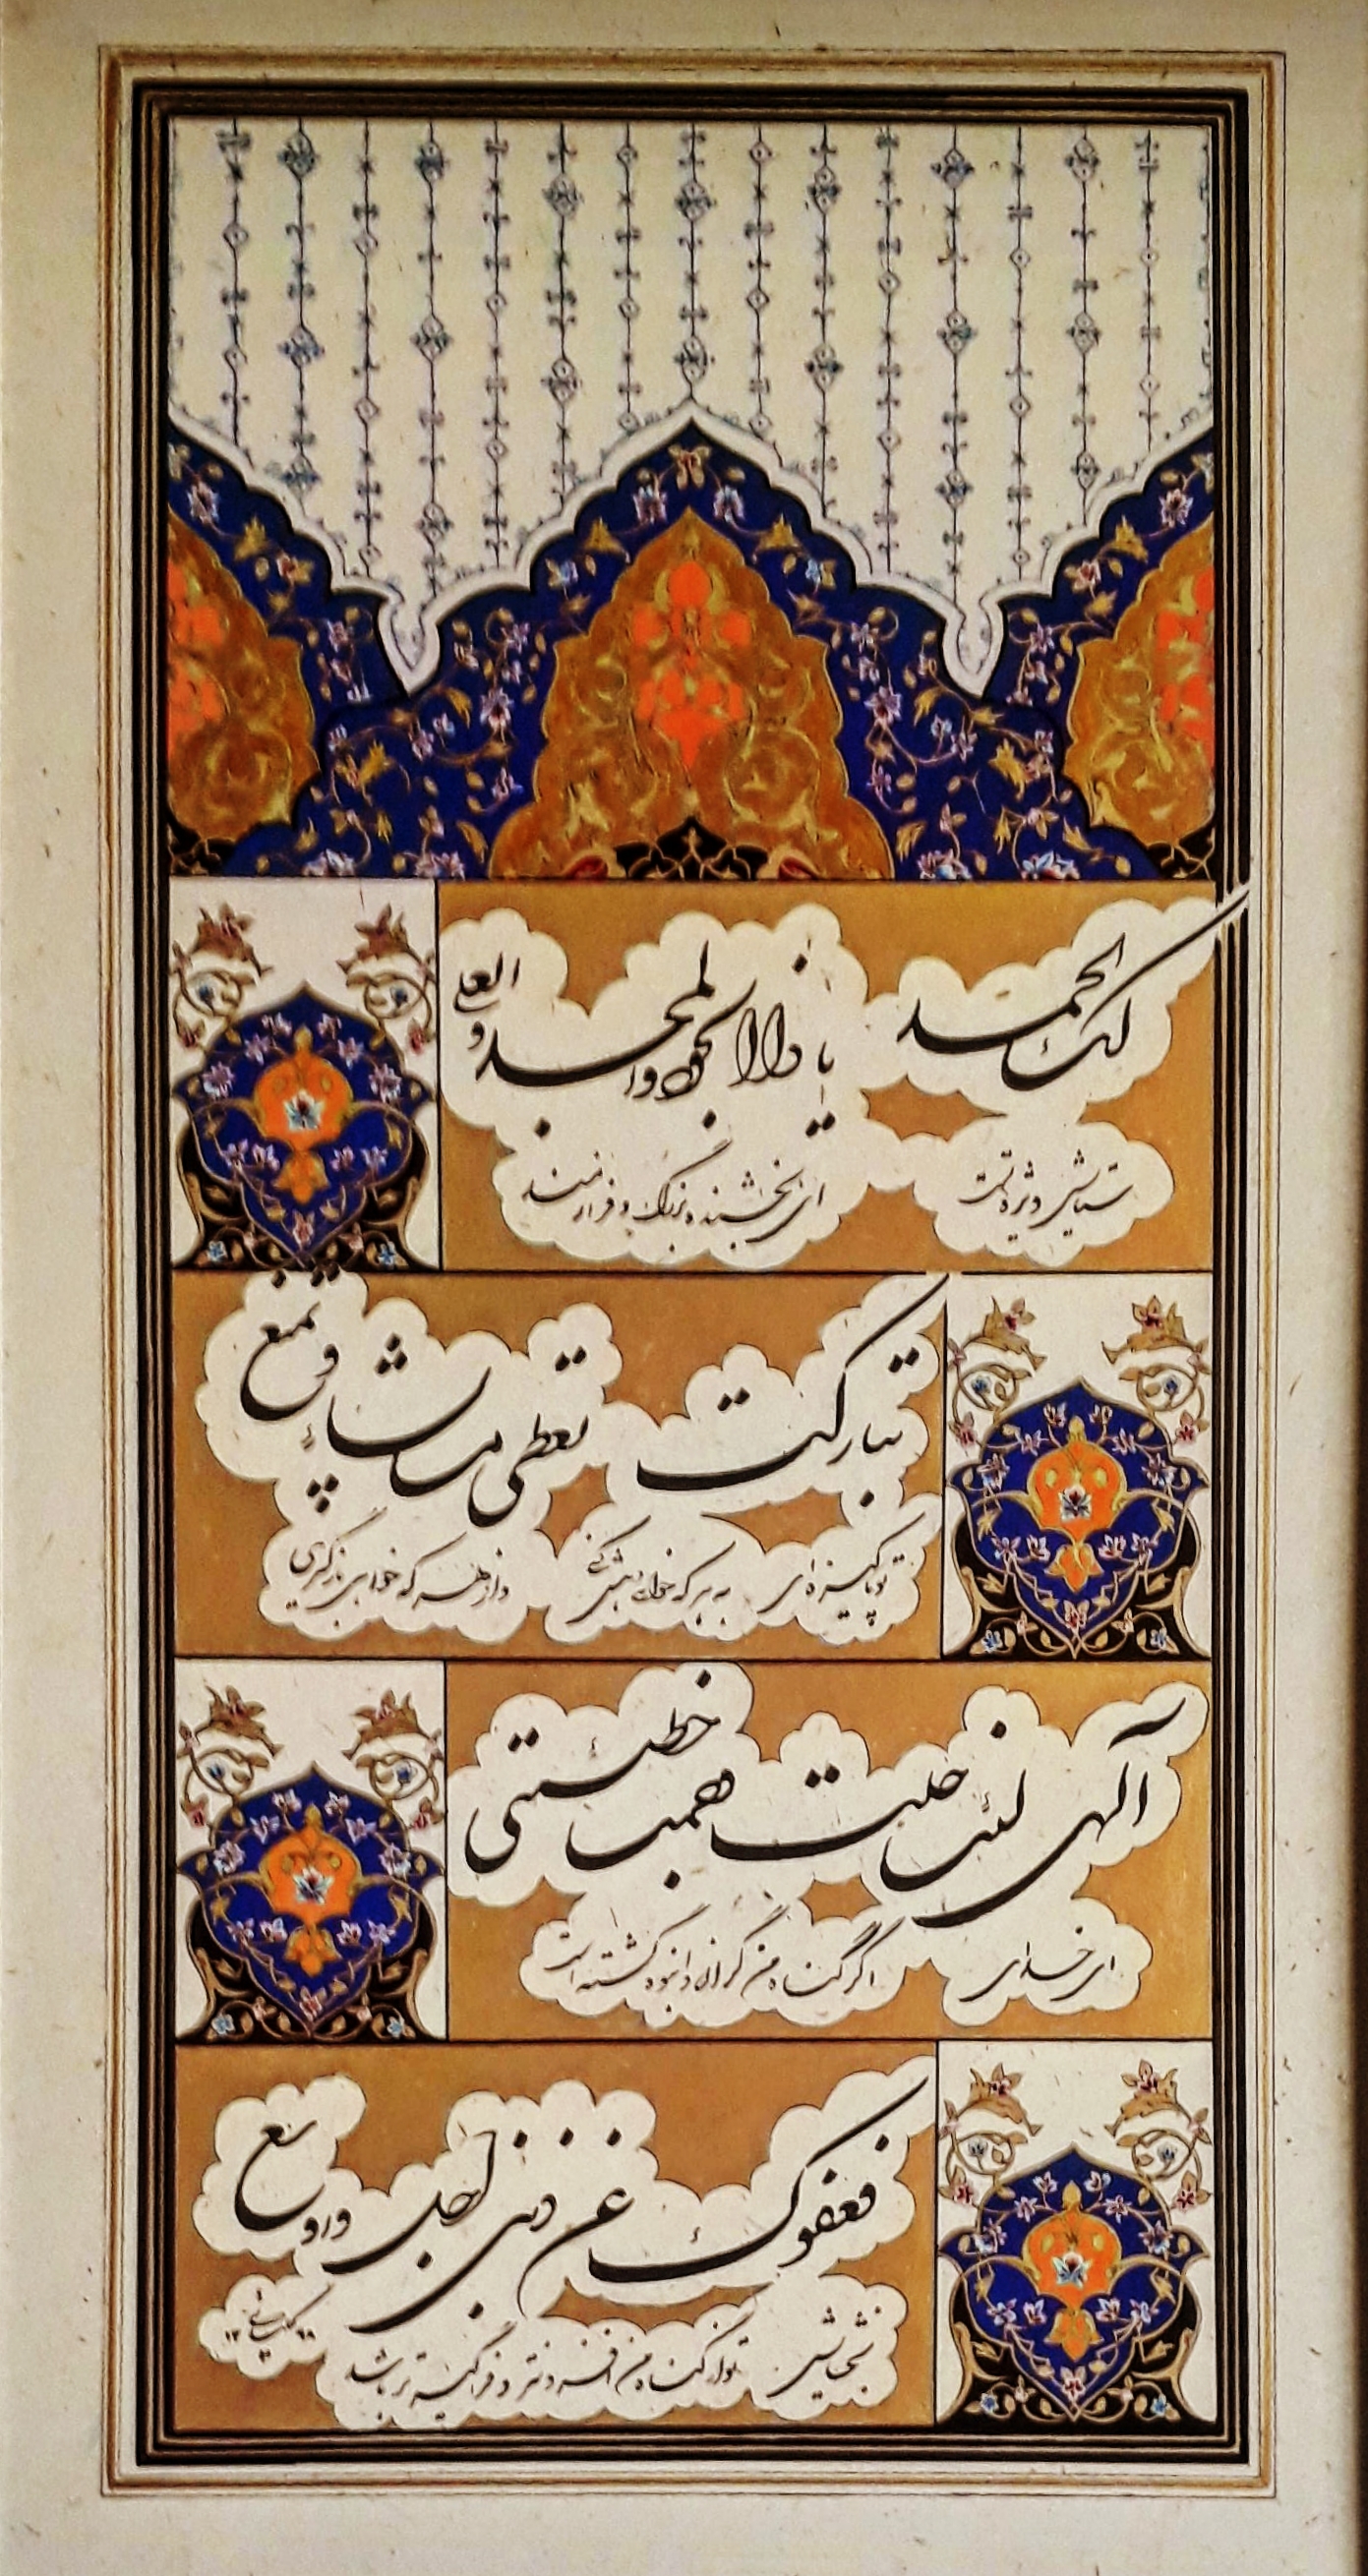 لک الحمد یا ذا الجود والمجد و العلی
ستایش ویژه تست ای بخشنده بزرگ و فرازمند
تبارکت تعطی من تشاء و تمنع
تو پاکیزه‌ای به هر که خواهی بخشش کنی و از هر که خواهی بازگیری
آلهی لئن جلت و جمت خطیئتی
ای خدای اگر گناه من گران و انبوه گشته است
فعفوک عن ذنبی اجل و اوسع
بخشایش تو از گناه من افزونتر و فراگیرتر باشد